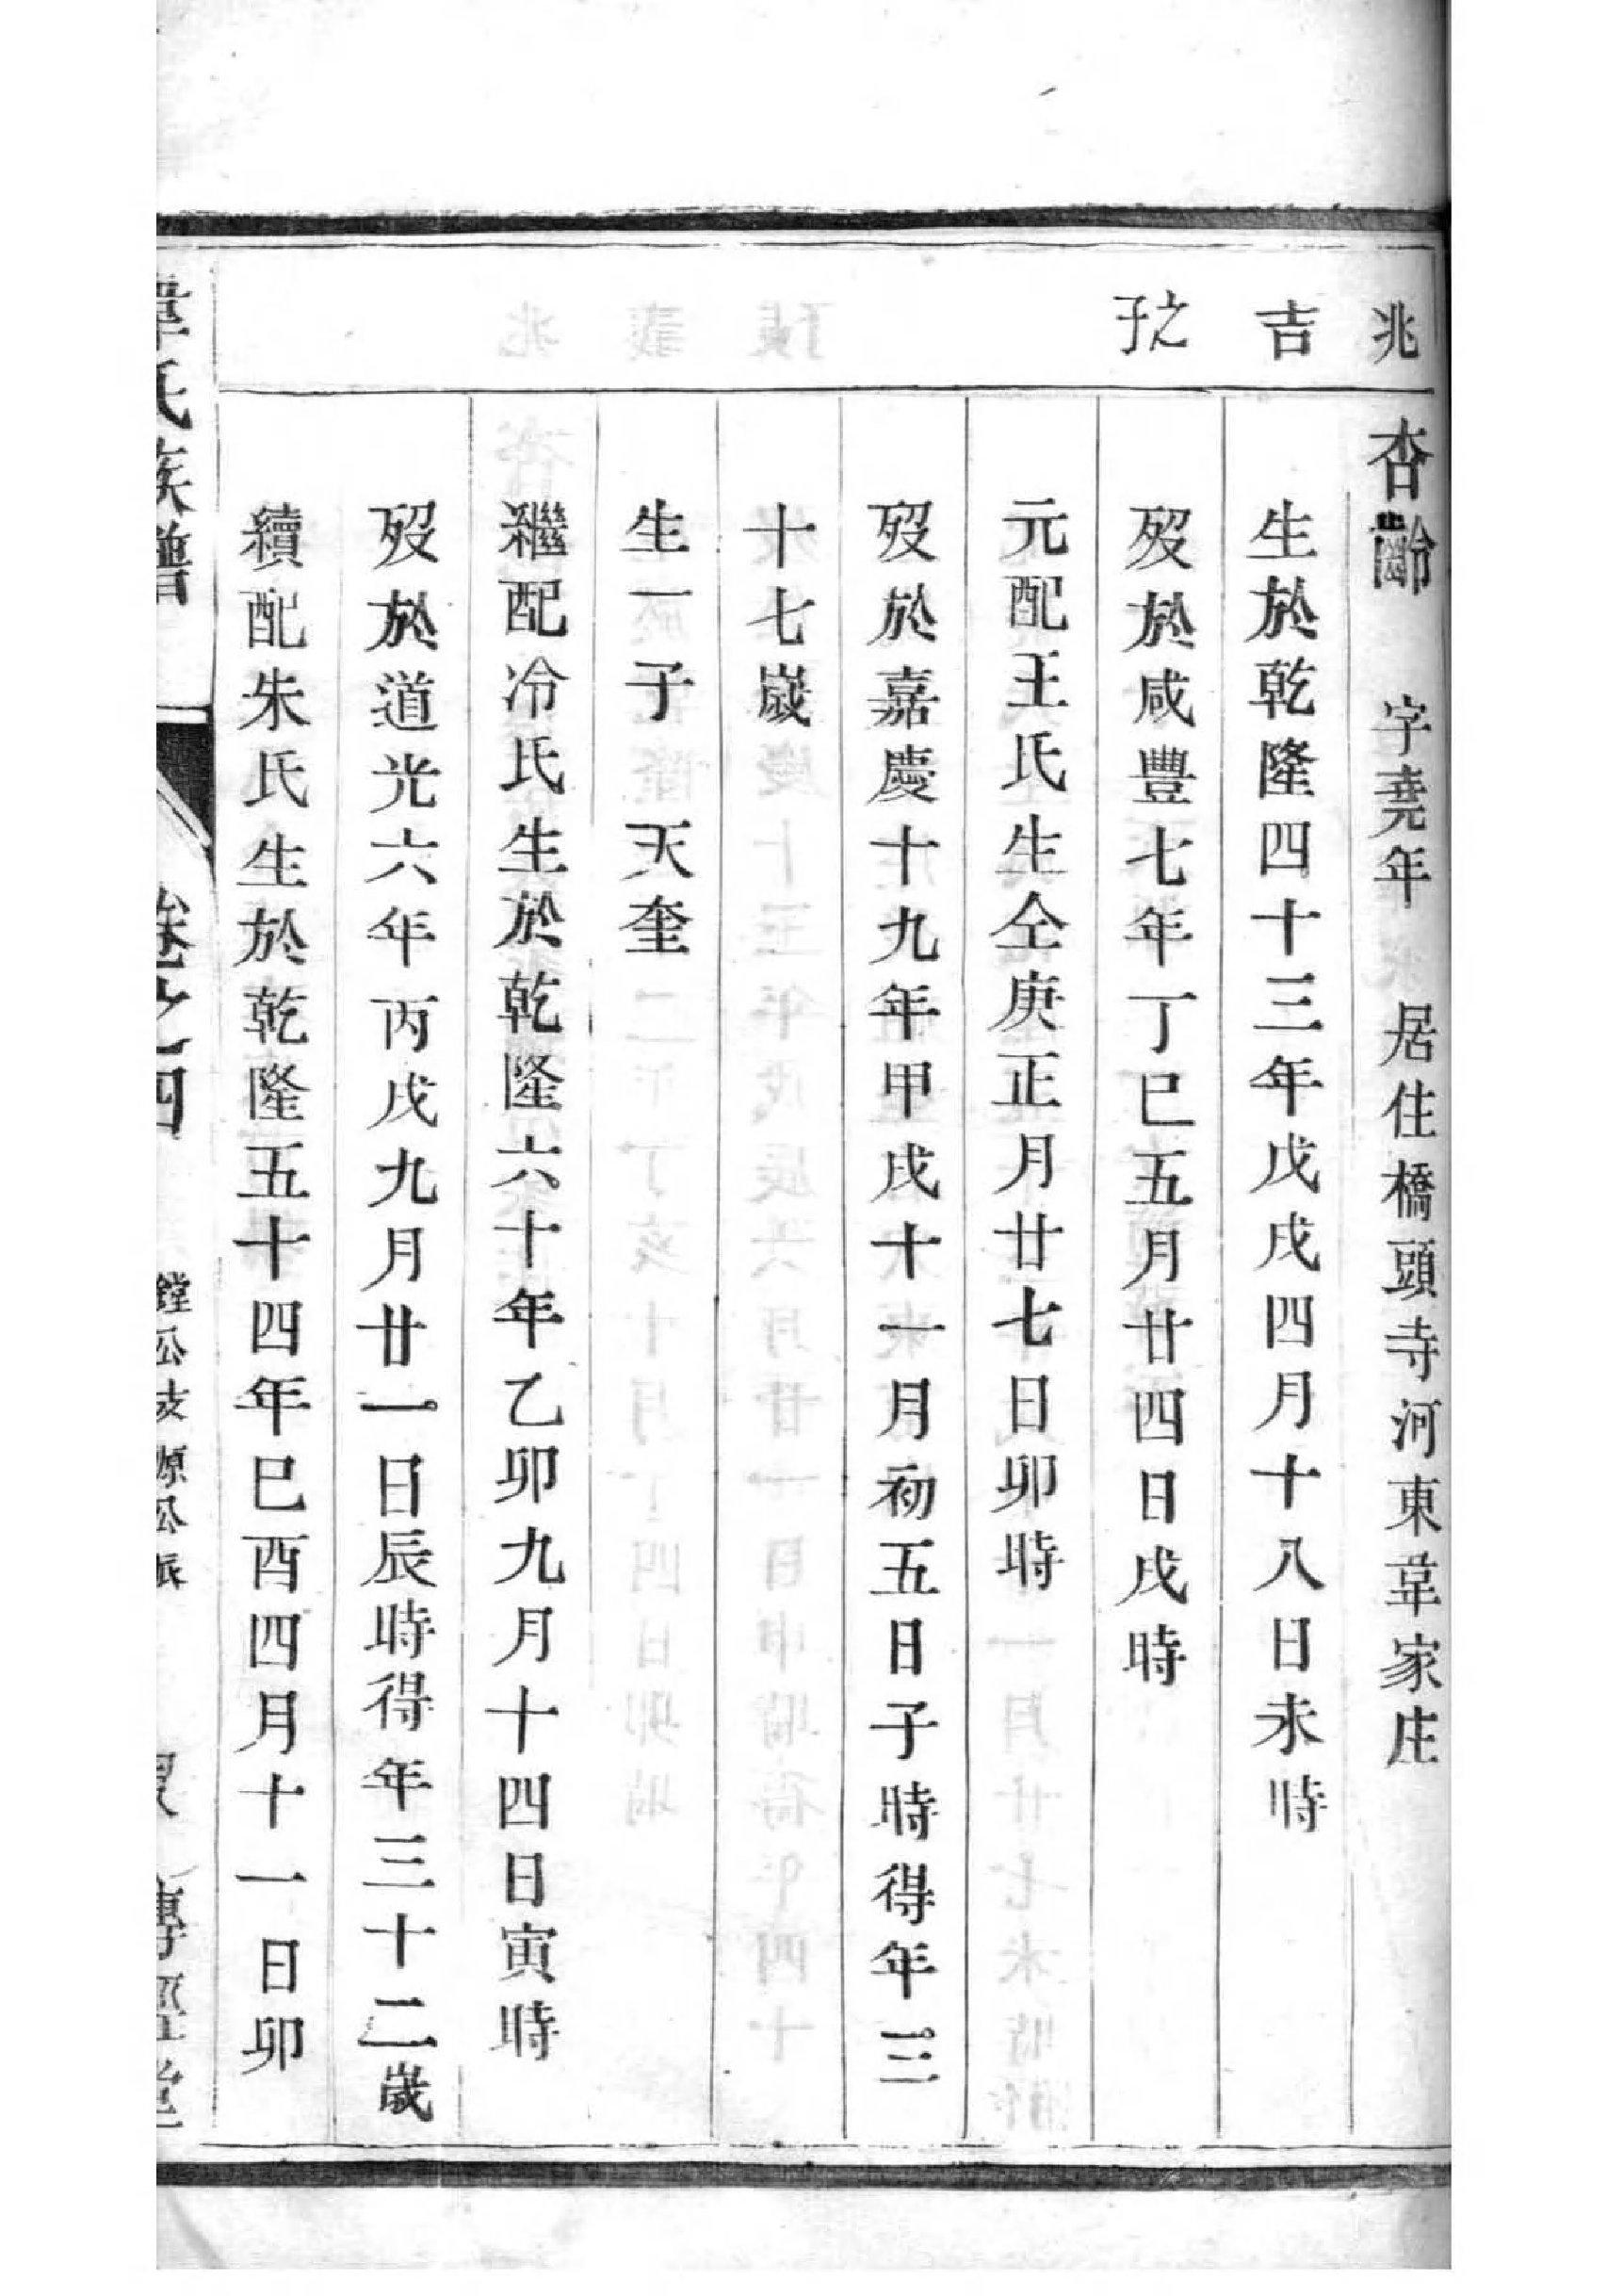 兆
吉
之子
杏齡 字堯年 居住橋頭寺河東韋家庄
生於乾隆四十三年戊戌四月十八日未時
歿於咸豐七年丁巳五月廿四日戌時
元配王氏生仝庚正月廿七日卯時
歿於嘉慶十九年甲戌十一月初五日子時得年三
十七歲
生一子 天奎
繼配冷氏生於乾隆六十年乙卯九月十四日寅時
歿於道光六年丙戌九月廿一日辰時得年三十二歲
續配朱氏生於乾隆五十四年巳酉四月十一日卯
韋氏族譜 卷之四 鏜公支源公派 傳經堂